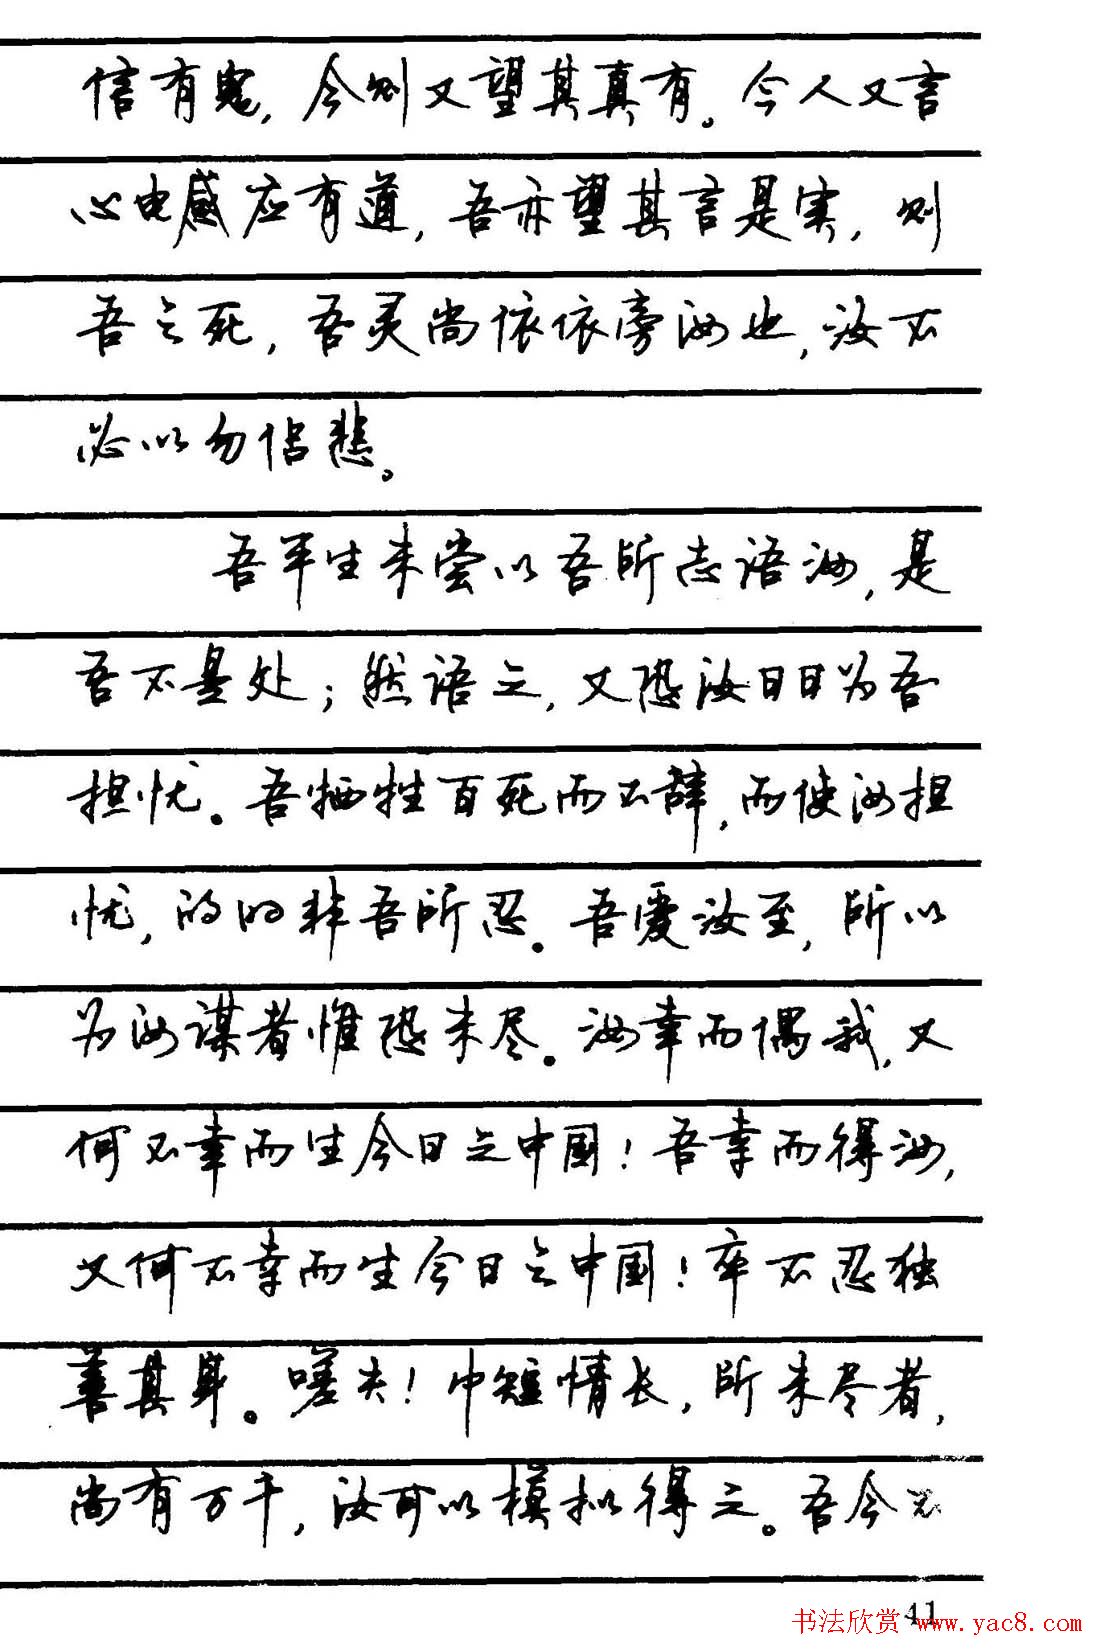 信有鬼，今则又望其真有。今人又言
心电感应有道，吾亦望其言是实，则
吾之死，吾灵尚依依旁汝也，汝不
必以勿侣悲。
吾平生未尝以吾所志语汝，是
吾不是处；然语之，又恐汝日日为吾
担忧。吾牺牲百死而不辞，而使汝担
忧，的的非吾所忍。吾爱汝至，所以
为汝谋者惟恐未尽。汝幸而偶我，又
何不幸而生今日之中国！吾幸而得汝，
又何不幸而生今日之中国！卒不忍独
善其身。嗟夫！巾短情长，所未尽者，
尚有万千，汝可以模拟得之。吾今不
41
书法欣赏 www.yac8.com